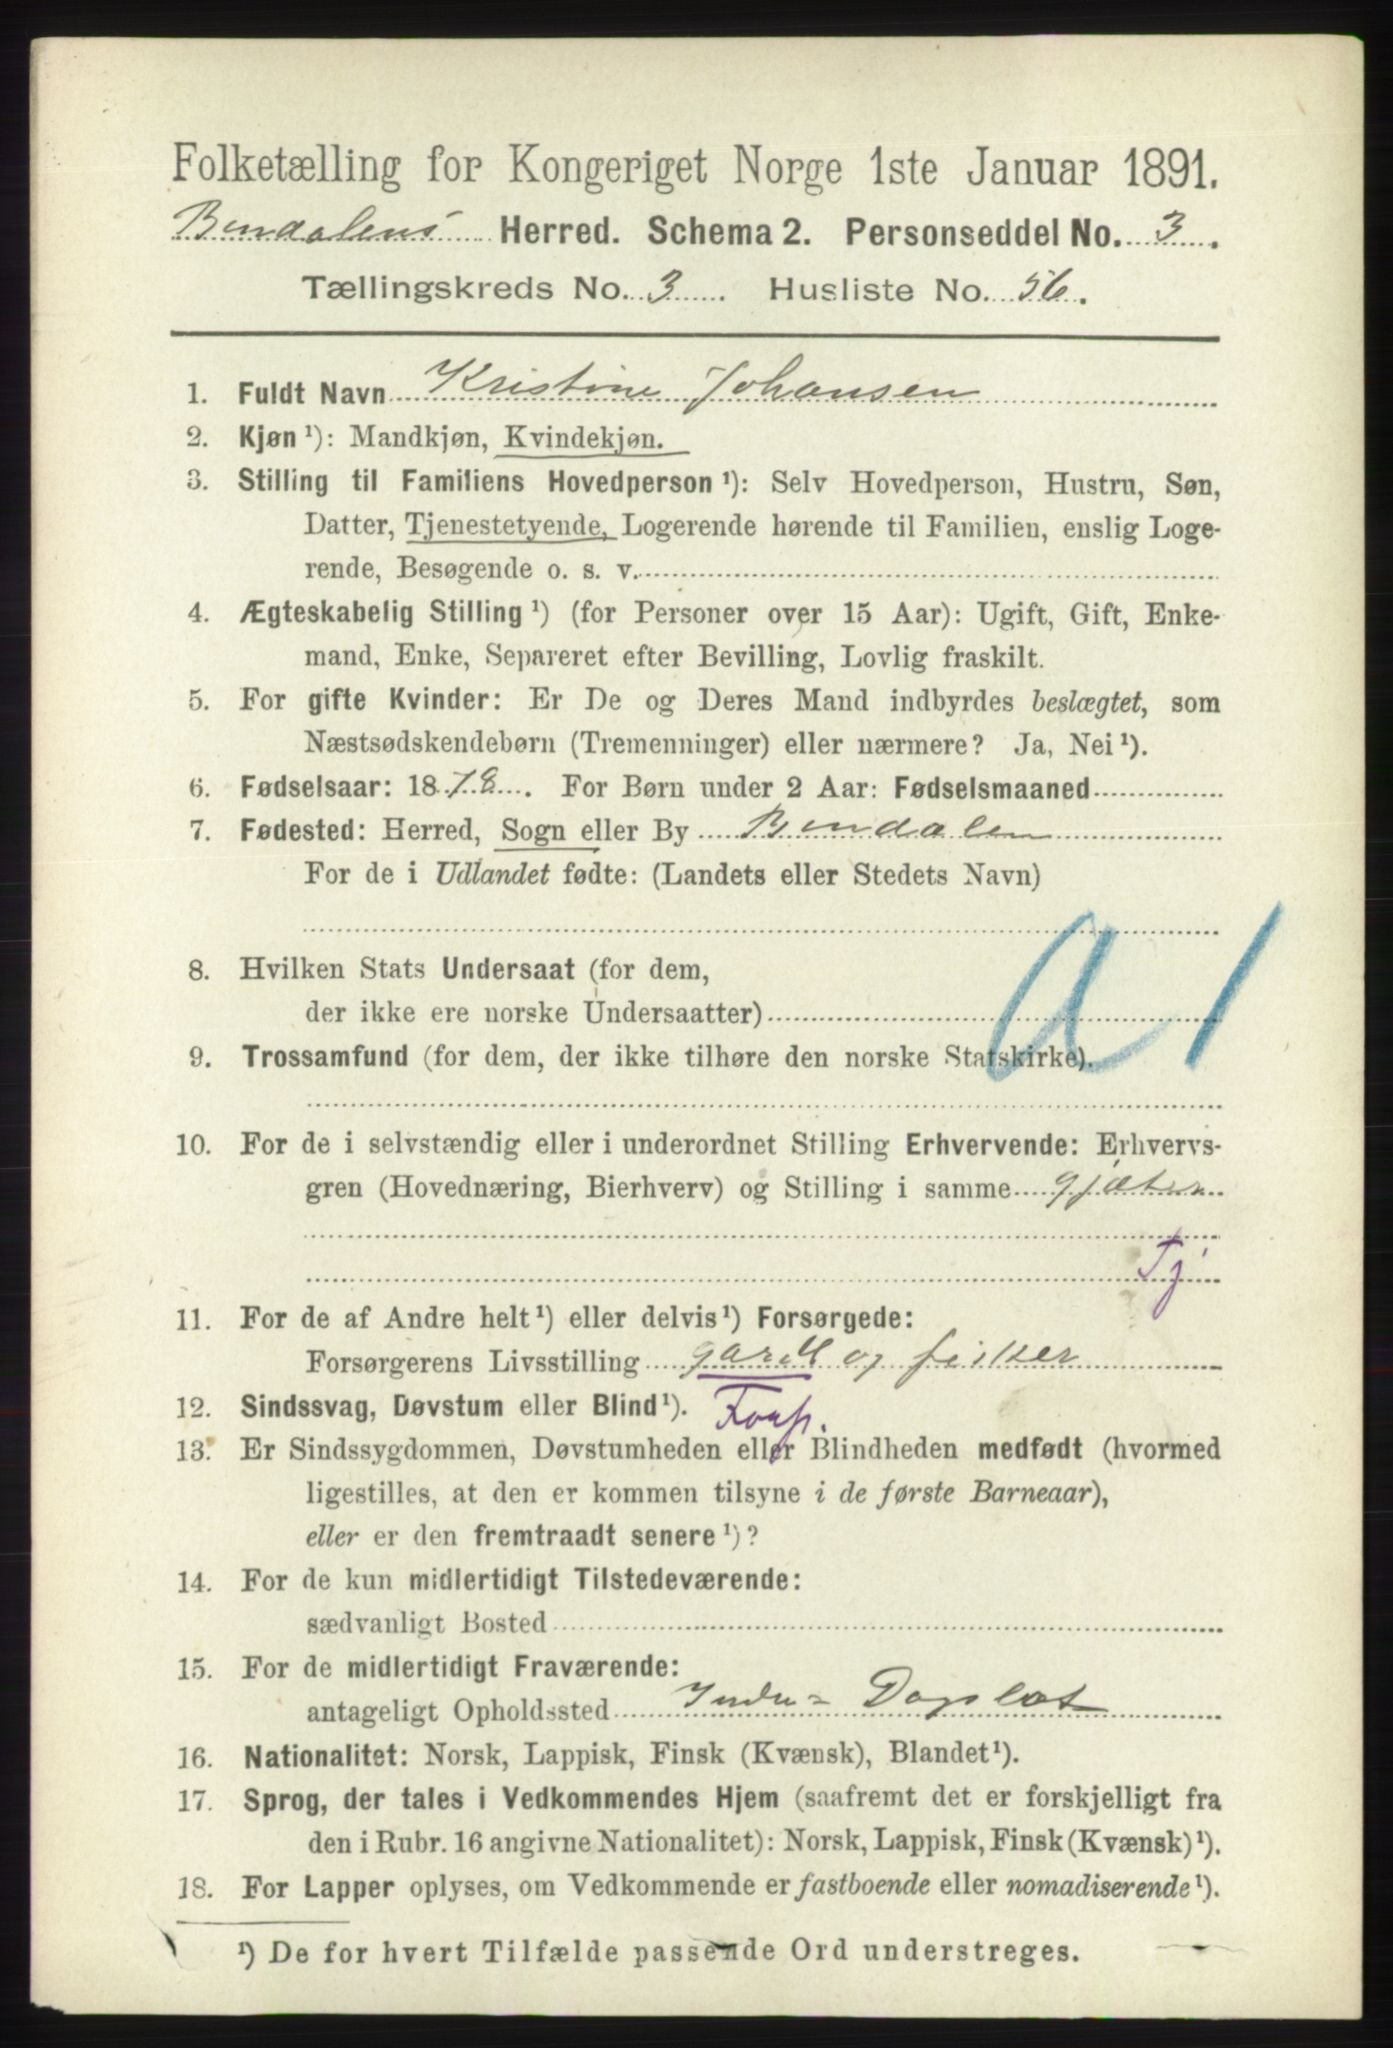 Folketælling for Kongeriget Norge 1ste Januar 1891.
Bindalens Herred. Schema 2. Personseddel No. 3.
Tællingskreds No. 3. Husliste No. 56.
1. Fuldt Navn Kristine Johansen
2. Kjøn ¹): Mandkjøn, Kvindekjøn.
3. Stilling til Familiens Hovedperson ¹): Selv Hovedperson, Hustru, Søn,
Datter, Tjenestetyende, Logerende hørende til Familien, enslig Loge-
rende, Besøgende o. s. v.
4. Ægteskabelig Stilling ¹) (for Personer over 15 Aar): Ugift, Gift, Enke-
mand, Enke, Separeret efter Bevilling, Lovlig fraskilt.
5. For gifte Kvinder: Er De og Deres Mand indbyrdes beslægtet, som
Næstsødskendebørn (Tremenninger) eller nærmere? Ja, Nei ¹).
6. Fødselsaar: 1878. For Børn under 2 Aar: Fødselsmaaned
7. Fødested: Herred, Sogn eller By Bindalen
For de i Udlandet fødte: (Landets eller Stedets Navn)
a 1
8. Hvilken Stats Undersaat (for dem,
der ikke ere norske Undersaatter)
9. Trossamfund (for dem, der ikke tilhøre den norske Statskirke).
10. For de i selvstændig eller i underordnet Stilling Erhvervende: Erhvervs-
gren (Hovednæring, Bierhverv) og Stilling i samme gjæter
Tj
11. For de af Andre helt ¹) eller delvis ¹) Forsørgede:
Forsørgerens Livsstilling og fisker
12. Sindssvag, Døvstum eller Blind ¹).
13. Er Sindssygdommen, Døvstumheden eller Blindheden medfødt (hvormed
ligestilles, at den er kommen tilsyne i de første Barneaar),
eller er den fremtraadt senere ¹)?
14. For de kun midlertidigt Tilstedeværende:
sædvanligt Bosted
15. For de midlertidigt Fraværende:
antageligt Opholdssted
16. Nationalitet: Norsk, Lappisk, Finsk (Kvænsk), Blandet ¹).
17. Sprog, der tales i Vedkommendes Hjem (saafremt det er forskjelligt fra
den i Rubr. 16 angivne Nationalitet): Norsk, Lappisk, Finsk (Kvænsk) ¹).
18. For Lapper oplyses, om Vedkommende er fastboende eller nomadiserende ¹).
¹) De for hvert Tilfælde passende Ord understreges.